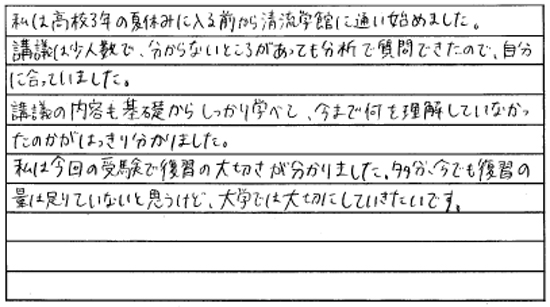 私は高校3年の夏休みに入る前から清流学館に通い始めました。
講議は少人数で、分からないところがあっても分析で質問できたので、自分
に合っていました。
講議の内容も基礎からしっかり学べて、今まで何を理解していなかっ
たのかがはっきり分かりました。
私は今回の受験で復習の大切さが分かりました。多分、今でも復習の
量は足りていないと思うけど、大学では大切にしていきたいです。